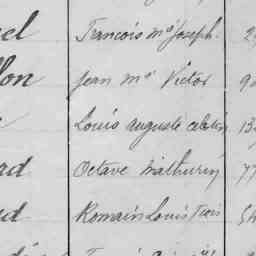 el François Mie Joseph. 2
lon Jean Mie Victor 9
Louis Auguste 13
rd Octave Mathurin 77
d Romain Louis